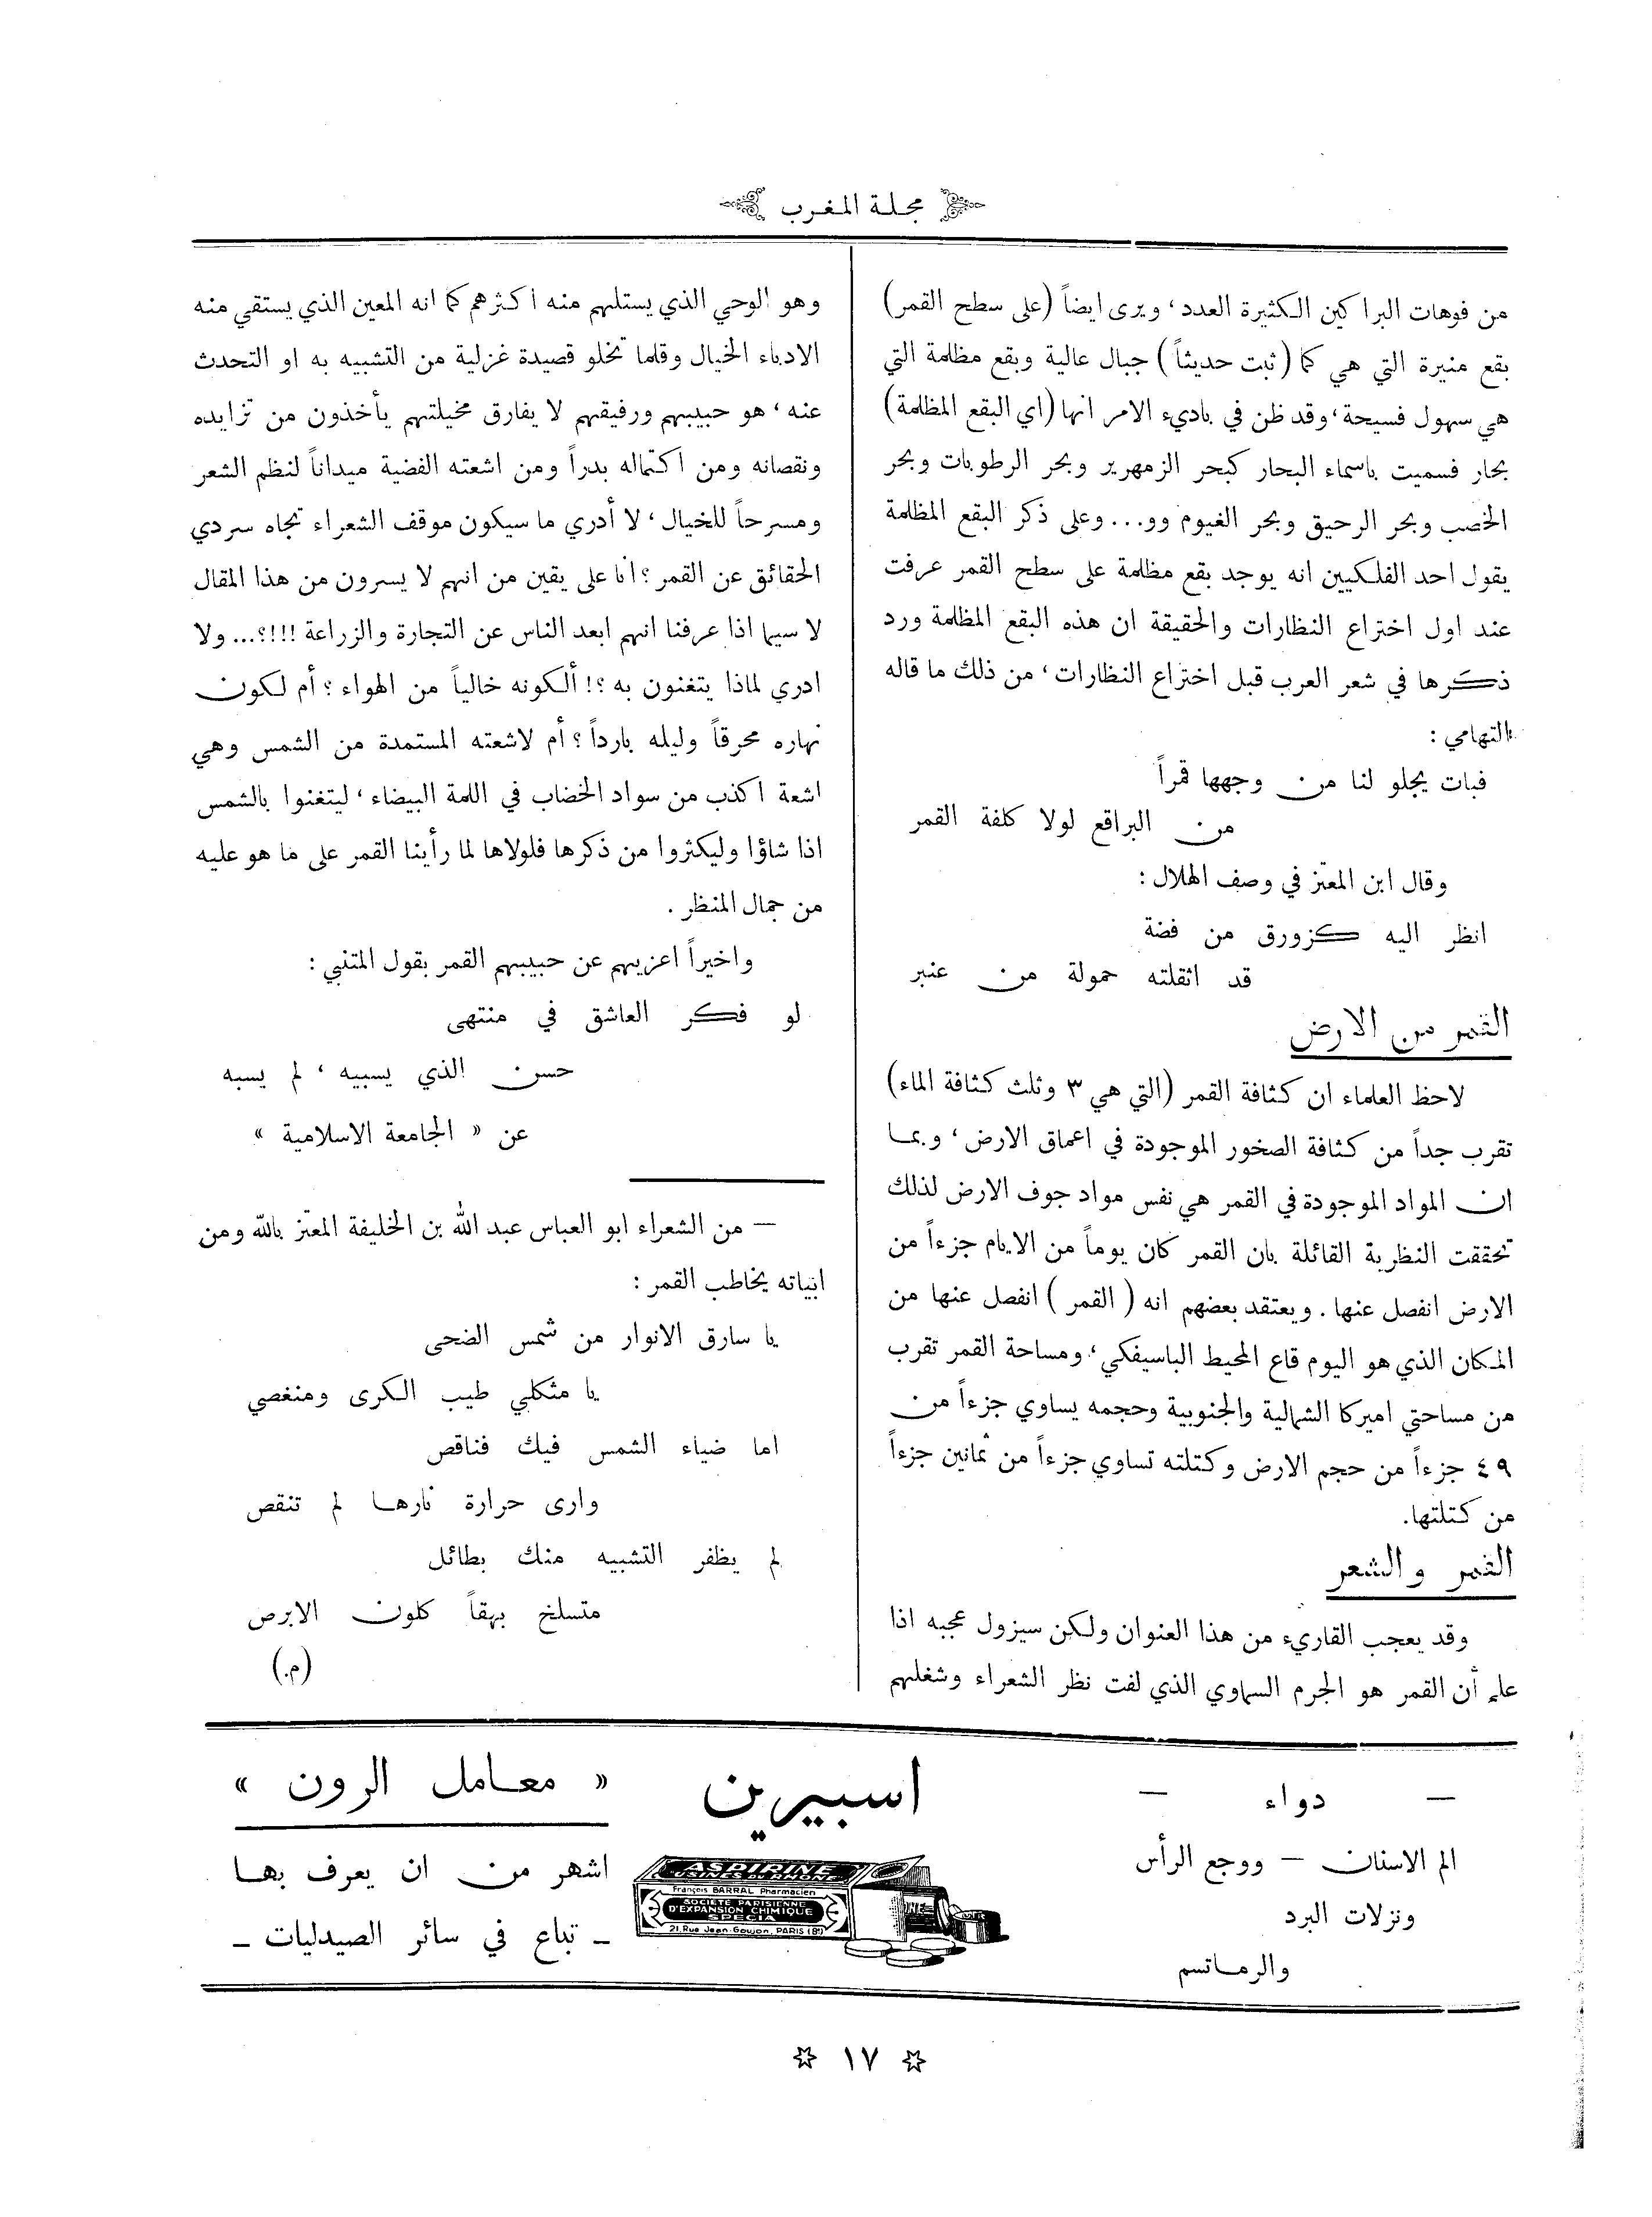 مجلة المغرب
من فوهات البراكين الكثيرة العدد، ويرى ايضاً (على سطح القمر)
بقع منيرة التي هي كما (ثبت حديثاً) جبال عالية وبقع مظلمة التي
هي سهول فسيحة، وقد ظن في باديء الامر انها (اي البقع المظلمة)
بحار فسميت باسماء البحار كبحر الزمهرير وبحر الرطوبات وبحر
الخصب وبحر الرحيق وبحر الغيوم وو... وعلى ذكر البقع المظلمة
يقول احد الفلكيين انه يوجد بقع مظلمة على سطح القمر عرفت
عند اول اختراع النظارات والحقيقة ان هذه البقع المظلمة ورد
ذكرها في شعر العرب قبل اختراع النظارات، من ذلك ما قاله
التهامي :
فبات يجلو لنا من وجهها قمراً
من البراقع لولا كلفة القمر
وقال ابن المعتز في وصف الهلال :
انظر اليه كزورق من فضة
قد اثقلته حمولة من عنبر
القمر من الارض
لاحظ العلماء ان كثافة القمر (التي هي ٣ وثلث كثافة الماء)
تقرب جداً من كثافة الصخور الموجودة في اعماق الارض، وبما
ان المواد الموجودة في القمر هي نفس مواد جوف الارض لذلك
تحققت النظرية القائلة بان القمر كان يوماً من الايام جزءاً من
الارض انفصل عنها . ويعتقد بعضهم انه ( القمر ) انفصل عنها من
المكان الذي هو اليوم قاع المحيط الباسيفكي، ومساحة القمر تقرب
من مساحتي اميركا الشمالية والجنوبية وحجمه يساوي جزءاً من
٤٩ جزءاً من حجم الارض وكتلته تساوي جزءاً من ثمانين جزءاً
من كتلتها.
القمر والشعر
وقد يعجب القاريء من هذا العنوان ولكن سيزول عجبه اذا
علم أن القمر هو الجرم السماوي الذي لفت نظر الشعراء وشغلهم
وهو الوحي الذي يستلهم منه اكثرهم كما انه المعين الذي يستقي منه
الادباء الخيال وقلما تخلو قصيدة غزلية من التشبيه به او التحدث
عنه، هو حبيبهم ورفيقهم لا يفارق مخيلتهم يأخذون من تزايده
ونقصانه ومن اكتماله بدراً ومن اشعته الفضية ميداناً لنظم الشعر
ومسرحاً للخيال، لا أدري ما سيكون موقف الشعراء تجاه سردي
الحقائق عن القمر ؟ انا على يقين من انهم لا يسرون من هذا المقال
لا سيما اذا عرفنا انهم ابعد الناس عن التجارة والزراعة !!!؟... ولا
ادري لماذا يتغنون به ؟! ألكونه خالياً من الهواء ؟ أم لكون
نهاره محرقاً وليله بارداً ؟ أم لاشعته المستمدة من الشمس وهي
اشعة اكذب من سواد الخضاب في اللمة البيضاء، ليتغنوا بالشمس
اذا شاؤا وليكثروا من ذكرها فلولاها لما رأينا القمر على ما هو عليه
من جمال المنظر .
واخيراً اعزيهم عن حبيبهم القمر بقول المتنبي :
لو فكر العاشق في منتهى
حسن الذي يسبيه ، لم يسبه
عن « الجامعة الاسلامية »
— من الشعراء ابو العباس عبد الله بن الخليفة المعتز بالله ومن
ابياته يخاطب القمر :
يا سارق الانوار من شمس الضحى
يا مثكلي طيب الكرى ومنغصي
اما ضياء الشمس فيك فناقص
وارى حرارة نارها لم تنقص
لم يظفر التشبيه منك بطائل
متسلخ بهقاً كلون الابرص
(م.)
— دواء —
الم الاسنان — ووجع الرأس
ونزلات البرد
والرماتسم
اسبيرين
ASPIRINE
USINES DU RHONE
François BARRAL Pharmacien
SOCIÉTÉ PARISIENNE
D'EXPANSION CHIMIQUE
SPECIA
21, Rue Jean-Goujon, PARIS (8e)
« معامل الرون »
اشهر من ان يعرف بها
– تباع في سائر الصيدليات –
١٧